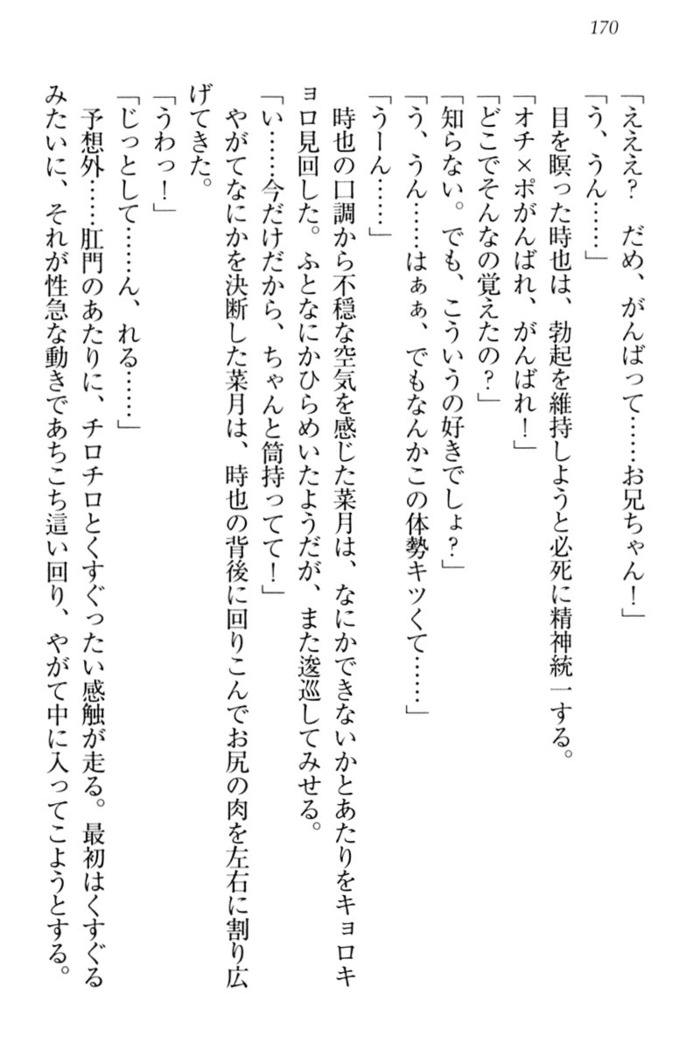 170
「えええ？　だめ、がんばって……お兄ちゃん！」
「う、うん……」
目を瞑った時也は、勃起を維持しようと必死に精神統一する。
「オチ×ポがんばれ、がんばれ！」
「どこでそんなの覚えたの？」
「知らない。でも、こういうの好きでしょ？」
「う、うん……はぁぁ、でもなんかこの体勢キツくて……」
「うーん……」
時也の口調から不穏な空気を感じた菜月は、なにかできないかとあたりをキョロキ
ョロ見回した。ふとなにかひらめいたようだが、また逡巡してみせる。
「い……今だけだから、ちゃんと筒持ってて！」
やがてなにかを決断した菜月は、時也の背後に回りこんでお尻の肉を左右に割り広
げてきた。
「うわっ！」
「じっとして……ん、れる……」
予想外……肛門のあたりに、チロチロとくすぐったい感触が走る。最初はくすぐる
みたいに、それが性急な動きであちこち這い回り、やがて中に入ってこようとする。